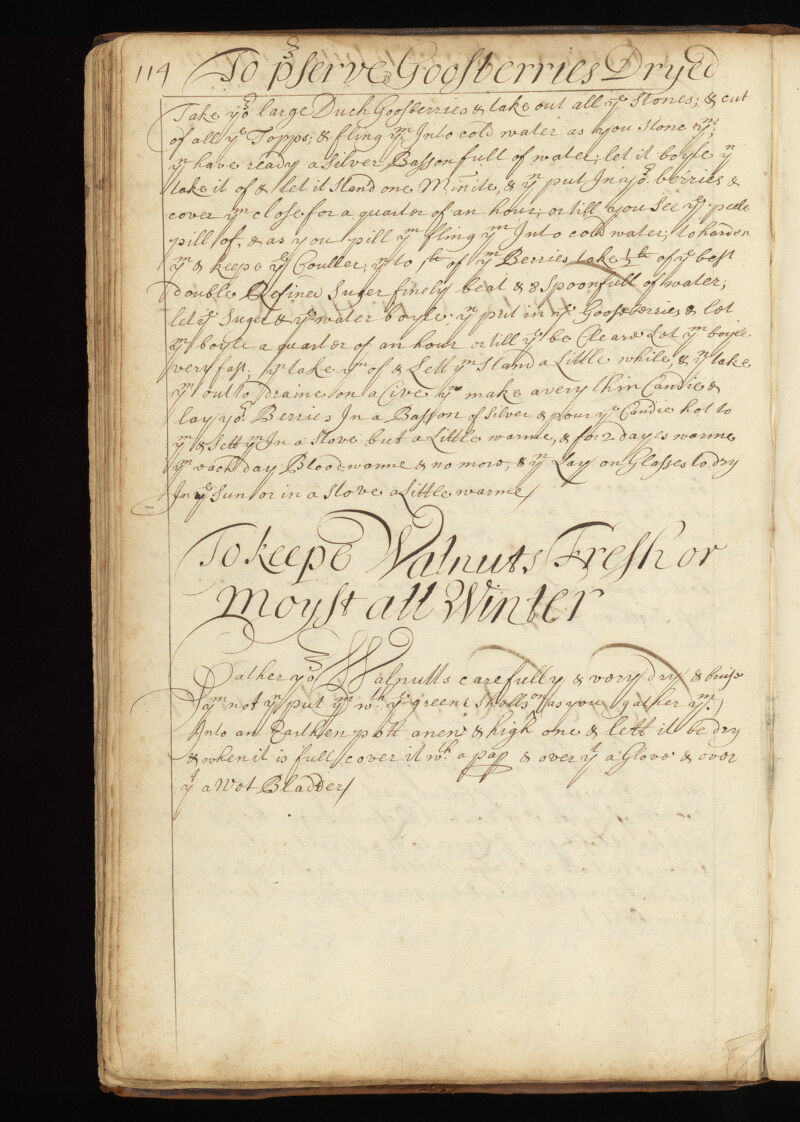 114 To pserve Goosberries Dryed
Take yor large Duch Goosberries & take out all ye Stones; & cut
of all ye Topps; & fling ym Into cold water as you stone ym;
yn have ready a Silver Basson full of water; let it boyle yn
take it of & let it Stand one Minite, & yn put In yor berries &
cover ym close for a quarter of an hour; or till you See ye peele
pill of, & as you pill ym fling ym Into cold water; to harden
ym & keepe ye Couller; yn to 1lb of ym Berries take 1/2lb of ye best
double Refined Suger finely beat & 8 Spoonfull of water;
let ye Suger & ye water boyle; yn put in ye Gooseberries & let
ym boyle a quarter of an hour or till ye be Cleare Let ym boyle
very fast, yn take ym of & Lett ym Stand a Little while, & yn take
ym out to draine on a Cive yn make a very thin Candie &
lay yor Berries In a Basson of Silver & pour ye Candie hot to
ym & Sett ym In a Stove but a Little warme, & for 2 dayes warme
ym each day Bloodwarme & no more, & yn Lay on Glasses to dry
In ye Sun or in a Stove a Little warme/
To keepe Walnuts Fresh or
Moyst all Winter
Gather yor Walnutts carefully & very dry & bruse
ym not yn put ym wth ye greene Shells on as you gather ym
Into an Earthen pott a new & high one & lett it be dry
& when it is full cover it wth a pap & over yt a Glove & over
yt a Wet Bladder/